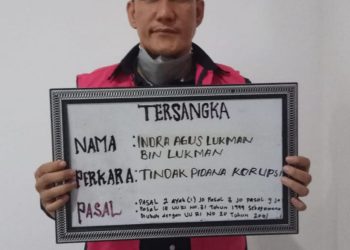 TERSANGKA
NAMA : INDRA AGUS LUKMAN
BIN LUKMAN
PERKARA : TINDAK PIDANA KORUPSI
PASAL : PASAL 2 ayat (1) Jo Pasal 3 Jo pasal 9 Jo
Pasal 18 UU RI No. 31 Tahun 1999 Sebagaimana
Diubah dengan UU RI No 20 Tahun 2001